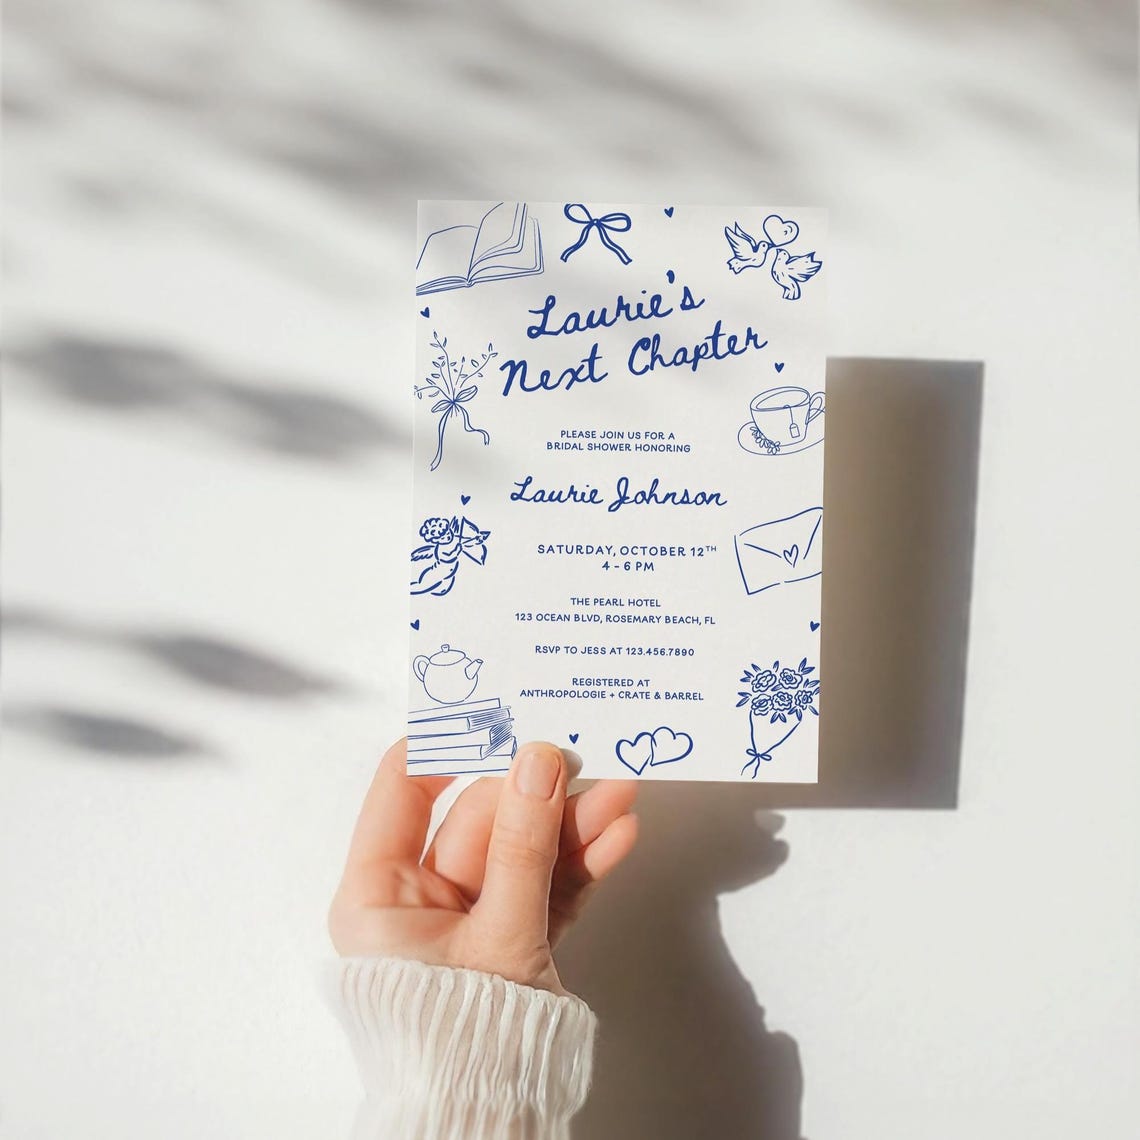 Laurie's
Next Chapter
PLEASE JOIN US FOR A
BRIDAL SHOWER HONORING
Laurie Johnson
SATURDAY, OCTOBER 12TH
4 - 6 PM
THE PEARL HOTEL
123 OCEAN BLVD, ROSEMARY BEACH, FL
RSVP TO JESS AT 123.456.7890
REGISTERED AT
ANTHROPOLOGIE + CRATE & BARREL